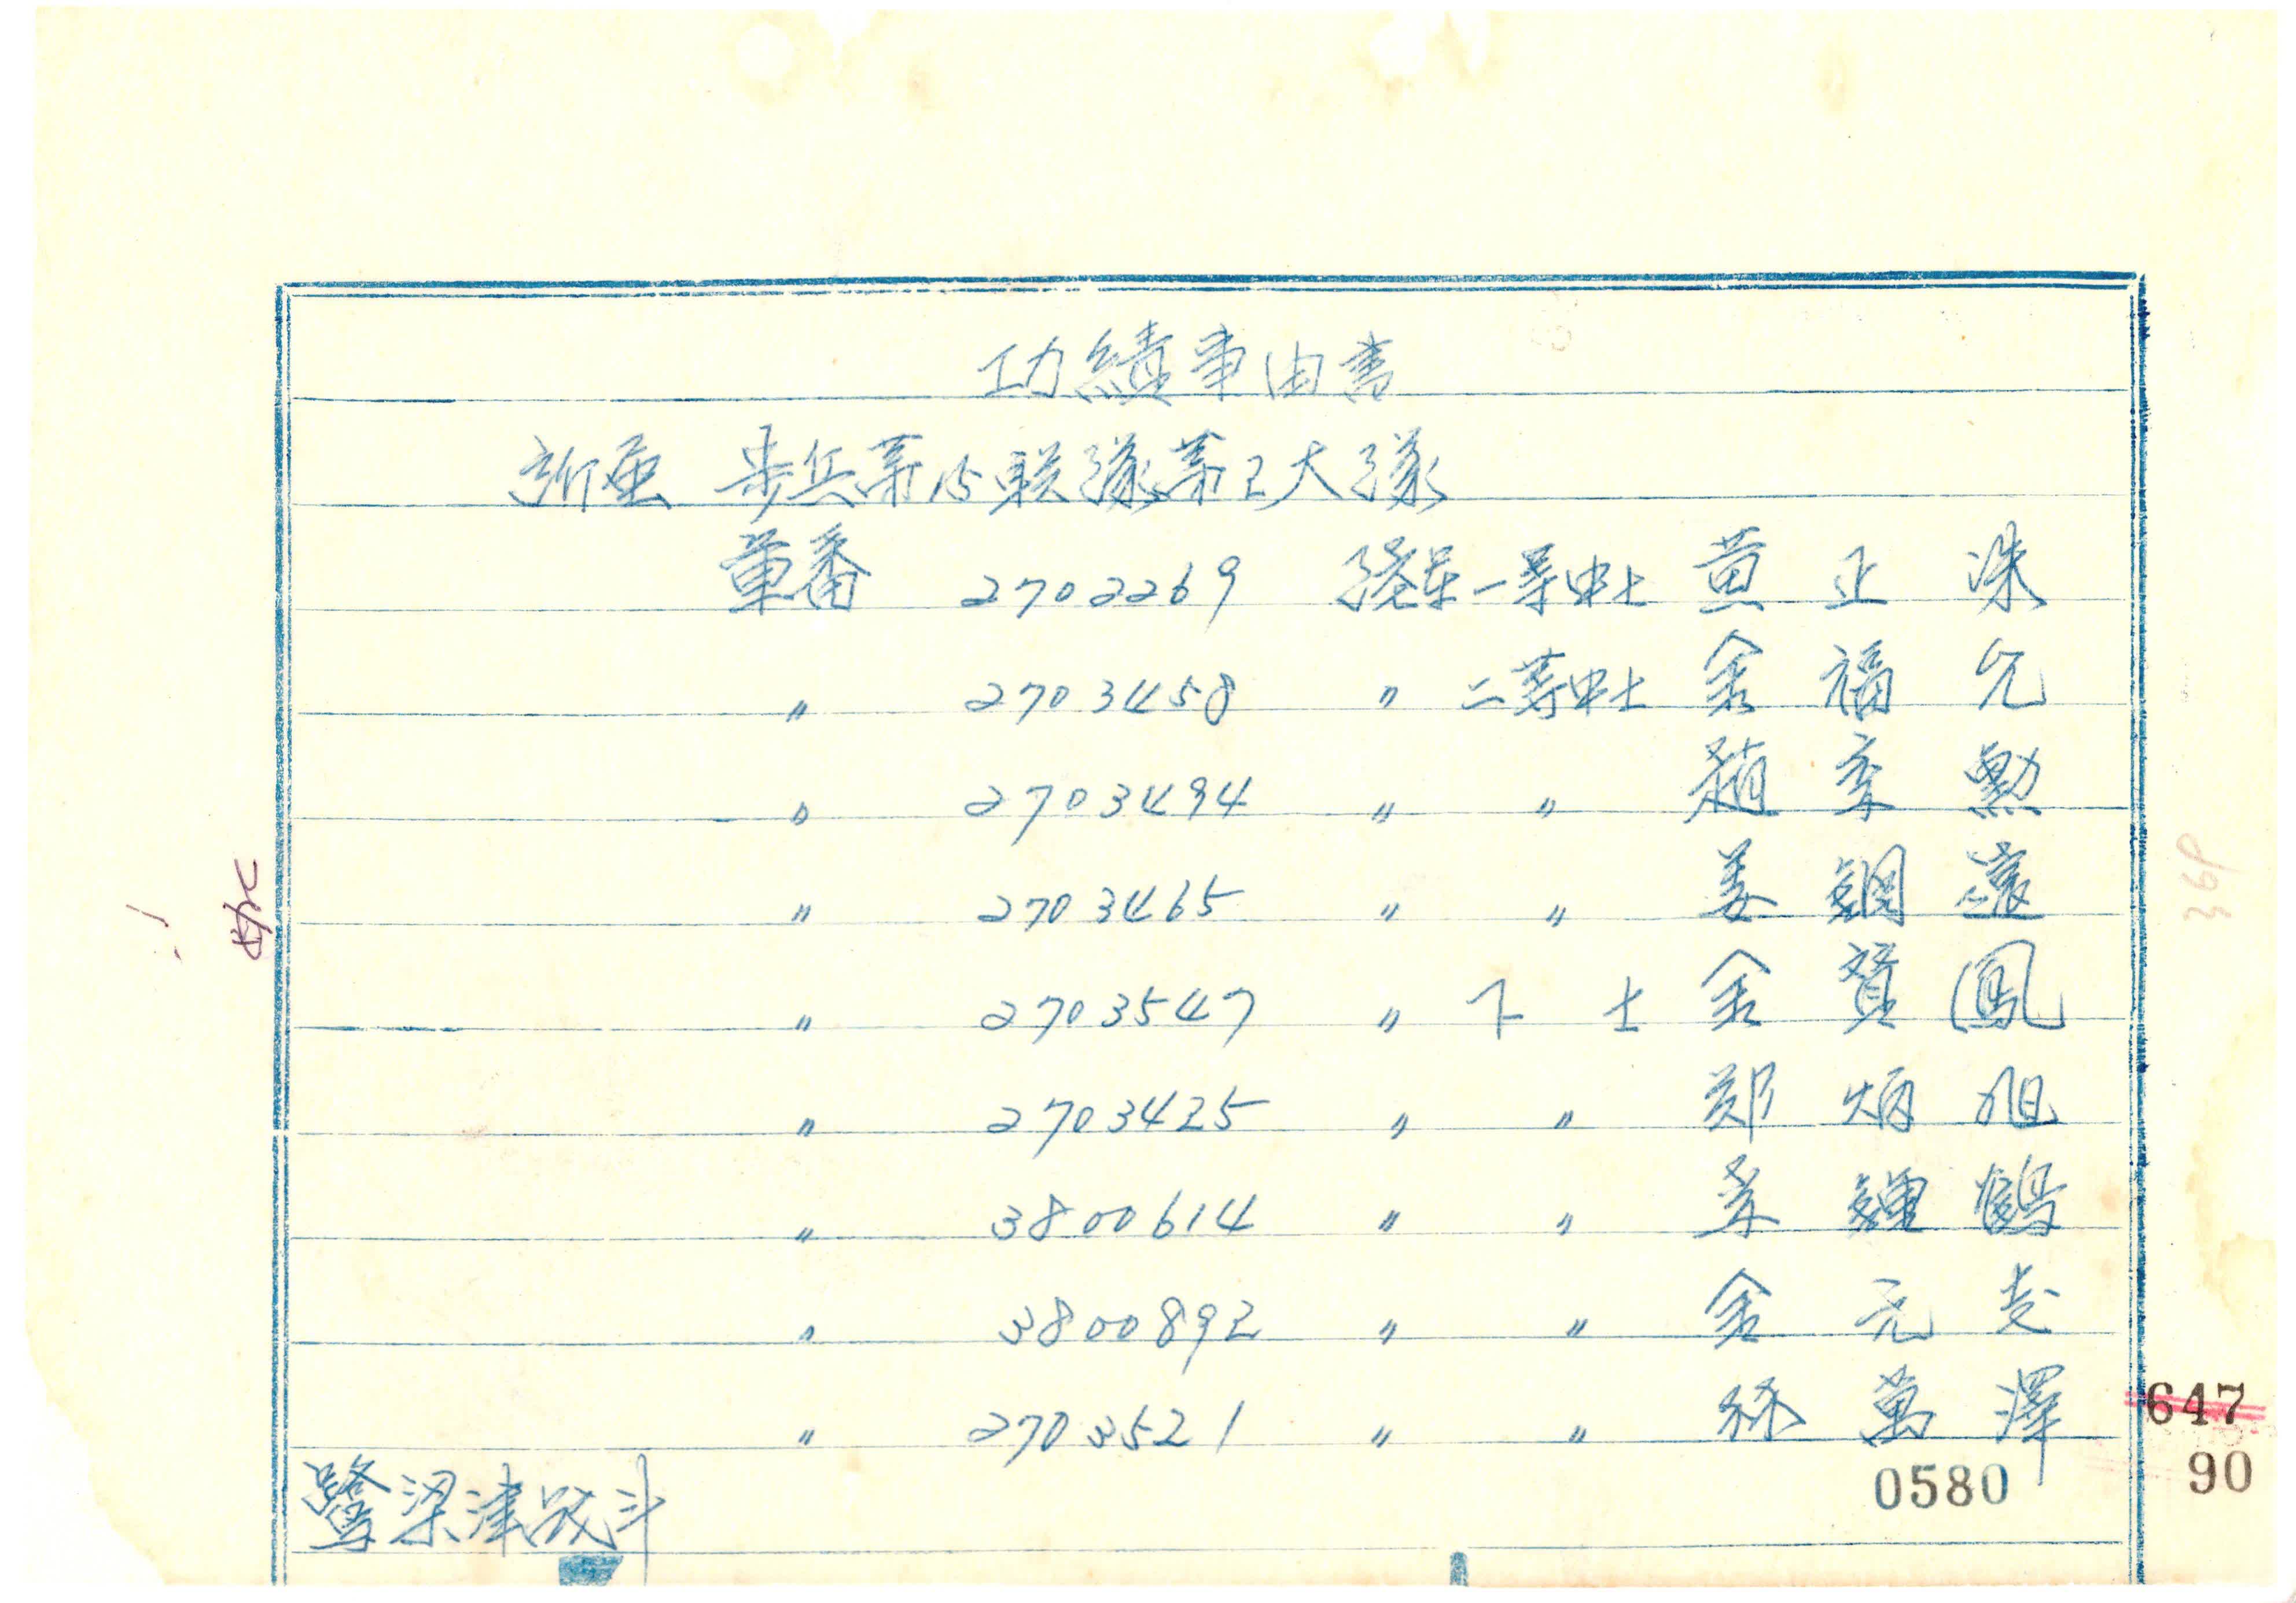 功績事由書
所屬 步兵第15联隊第2大隊
軍番 2702269 陸軍一等中士 黃正洙
〃 2703458 〃 二等中士 金福允
〃 2703494 〃 〃 趙 勲
〃 2703465 〃 〃 姜鋼遠
〃 2703547 〃 下士 金賛鳳
〃 2703425 〃 〃 郑炳旭
〃 3800614 〃 〃 鍾鶴
〃 3800892 〃 〃 金元
〃 2703521 〃 〃 萬澤
鷺梁津战斗
0580
647
90